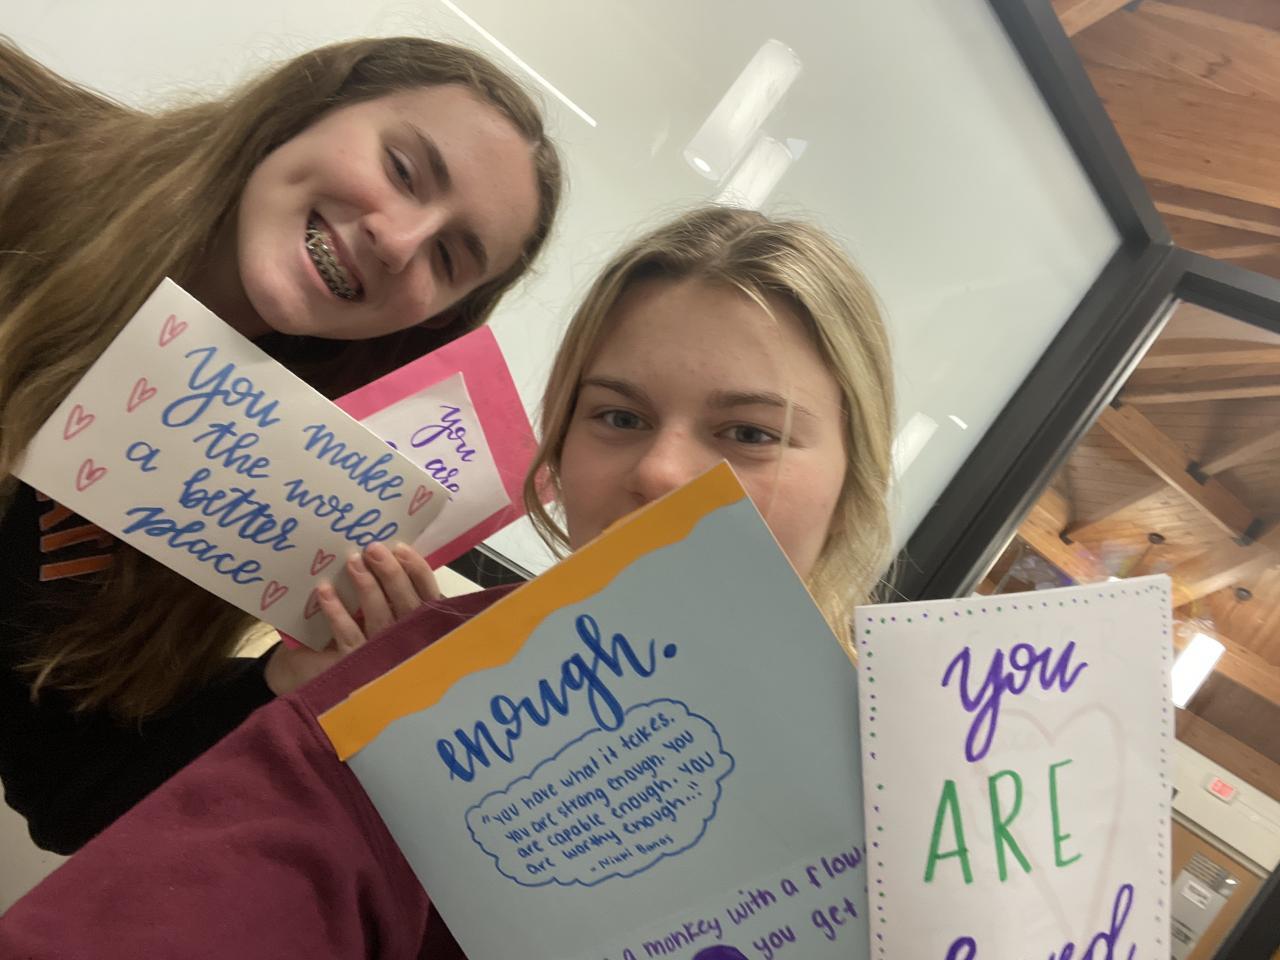 You make
the world
a better
place
you
are
enough.
"you have what it takes.
you are strong enough. you
are capable enough. you
are worthy enough..."
- Nikki Banas
a monkey with a flow
you get
you
ARE